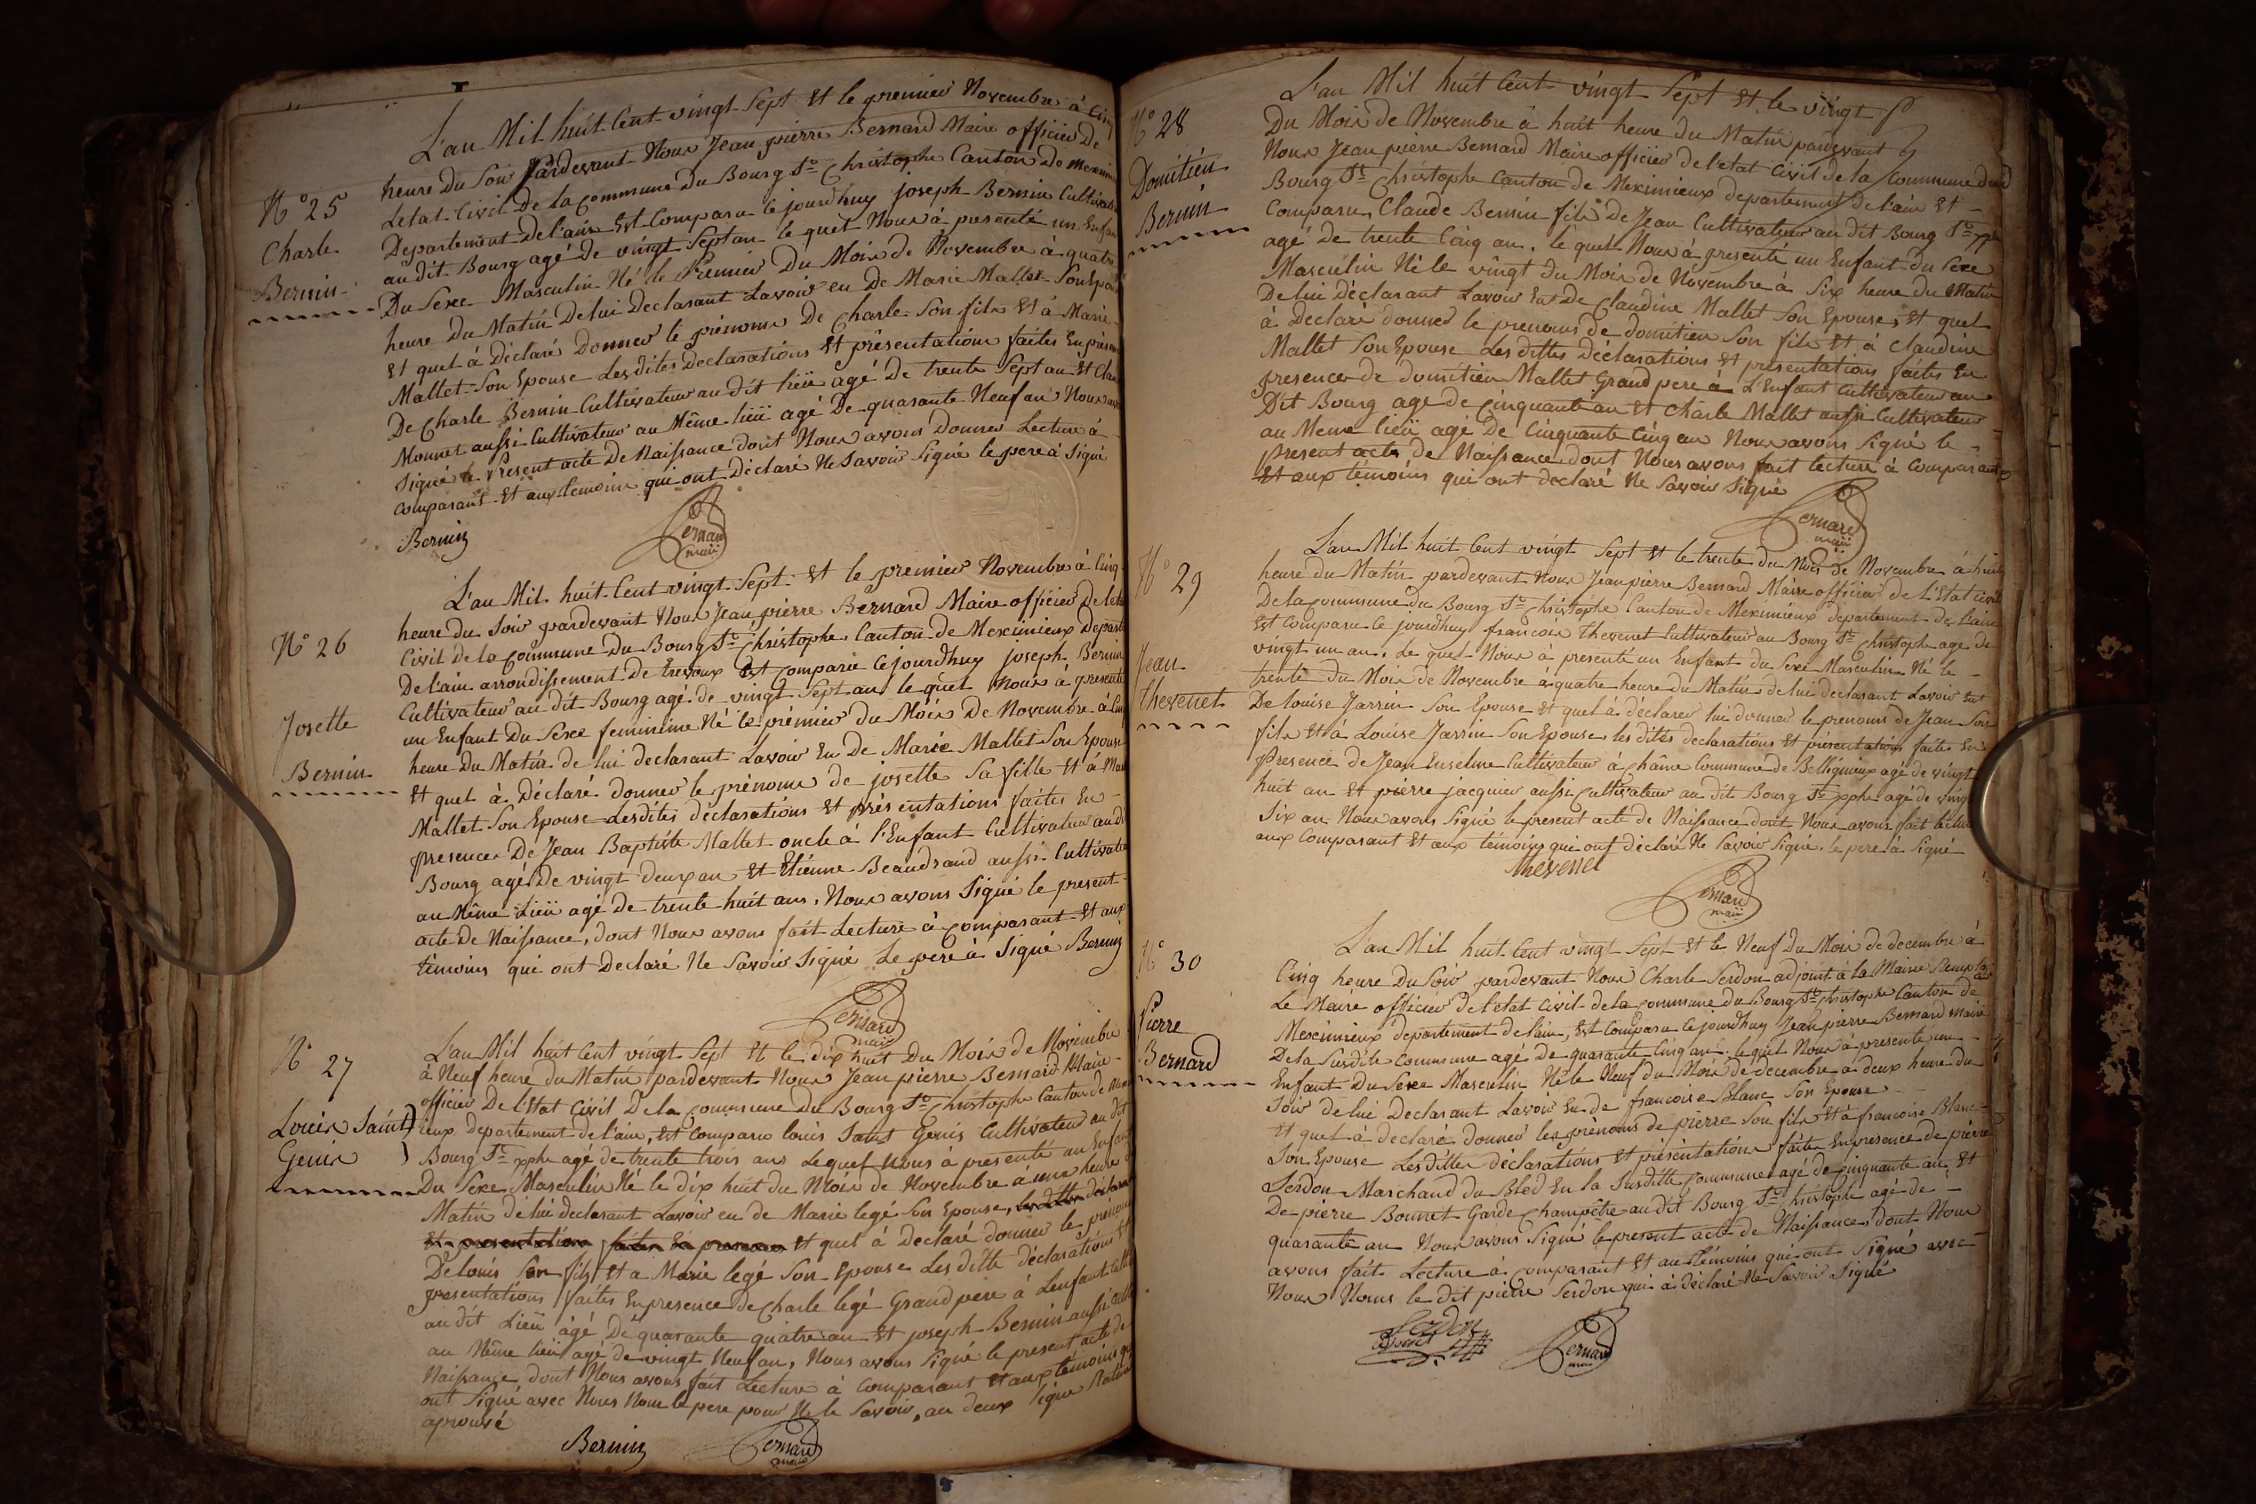 L'an Mil huit Cent vingt Sept Et le premier Novembre à Cinq
heure Du Soir Pardevant Nous Jean pierre Bernard Maire officier De
Letat Civil De la Commune Du Bourg St Christophe Canton De Meximieux
Departement De l'ain Est Comparu Ce jourdhuy joseph Bernin Cultivateur
au dit Bourg agé De vingt Sept an le quel Nous à presenté un Enfant
Du Sexe Masculin Né le Premier Du Mois de Novembre à quatre
heure Du Matin De lui Declarant Lavoir eu De Marie Mallet Son Epouse
Et quel à Déclaré Donner le prénoms De Charle Son fils Et à Marie
Mallet Son Epouse Les dites Declarations Et présentations faites En présence
De Charle Bernin Cultivateur au dit lieu agé De trente Sept an Et
Monnet aussi Cultivateur au Même lieu agé De quarante Neuf an Nous avons
Signé le Present acte De Naissance dont Nous avons Donner Lecture à
Comparant Et aux temoins qui ont Déclaré Ne Savoir Signé le pere à Signé
N° 25
Charle
Bernin
Bernin
Bernard
maire
L'an Mil huit Cent vingt Sept Et le premier Novembre à Cinq
heure du Soir pardevant Nous Jean pierre Bernard Maire officier De letat
Civil de la Commune Du Bourg St Christophe Canton de Meximieux Departement
De l'ain arrondissement de trevoux Est Comparu Ce jourdhuy joseph Bernin
Cultivateur au dit Bourg agé de vingt Sept an le quel nous à presenté
un Enfant Du Sexe feminime Né le prémier du Mois De Novembre à Cinq
heure Du Matin de lui declarant Lavoir Eu De Marie Mallet Son Epouse
Et quel à Déclaré donner le prénoms de josette Sa fille Et à Marie
Mallet Son Epouse Lesdites déclarations Et présentations faites En
presence De Jean Baptiste Mallet oncle à l'Enfant Cultivateur au dit
Bourg agé De vingt deux an Et Etienne Beaudrand aussi Cultivateur
au Même Lieu agé de trente huit ans, Nous avons Signé le present
acte De Naissance, dont Nous avons fait Lecture à Comparant Et aux
témoins qui ont Declaré Ne Savoir Signé Le pere à Signé Bernin
N° 26
Josette
Bernin
Bernard
maire
L'an Mil huit Cent vingt Sept Et le dix huit Du Mois de Novembre
à Neuf heure du Matin pardevant Nous Jean pierre Bernard Maire
officier De l'Etat Civil De la Commune Du Bourg St Christophe Canton de Mexim
ieux departement de l'ain, Est Comparu louis Saint Genis Cultivateur au dit
Bourg St xphe agé de trente trois ans Lequel Nous à presenté un Enfant
Du Sexe Masculin Né le dix huit du Mois de Novembre à une heure
Matin de lui declarant Lavoir eu de Marie legé Son Epouse, les dittes déclarations
Et presentations faites En presence Et quel à Declaré donner le prenoms
De louis Son fils Et a Marie legé Son Epouse Les ditte déclarations Et
presentations faites En presence de Charle legé Grand pere à L'enfant
au dit Lieu agé De quarante quatre an Et joseph Bernin aussi
au Même lieu agé de vingt Neuf an, Nous avons Signé le present acte de
Naissance dont Nous avons fait Lecture à Comparant Et aux témoins qui
ont Signé avec Nous Nom le pere pour Ne le Savoir, au deux ligne
aprouvé
N° 27
Louis Saint
Genis
Bernin
Bernard
maire
L'an Mil huit Cent vingt Sept Et le vingt
Du Mois de Novembre à huit heure du Matin pardevant
Nous Jean pierre Bernard Maire officier de letat Civil de la Commune du
Bourg St Christophe Canton de Meximieux departement De l'ain Et
Comparu Claude Bernin fils de Jean Cultivateur au dit Bourg St xphe
agé De trente Cinq an, le quel Nous à presenté un Enfant du Sexe
Masculin Né le vingt du Mois de Novembre à Six heure du Matin
De lui Déclarant Lavoir Eu De Claudine Mallet Son Epouse, Et quel
à Déclaré donner le prenoms de domitien Son fils Et à Claudine
Mallet Son Epouse Les dittes Déclarations Et présentations faites En
presence de domitien Mallet Grand pere à L'Enfant Cultivateur au
Dit Bourg age de Cinquante an Et Charle Mallet aussi Cultivateur
au Meme lieu agé De Cinquante Cinq an Nous avons Signé le
present acte de Naissance dont Nous avons fait lecture à Comparant
Et aux témoins qui ont declaré Ne Savoir Signé
N° 28
Domitien
Bernin
Bernard
maire
L'an Mil huit Cent vingt Sept Et le trente du Mois de Novembre à huit
heure du Matin pardevant Nous Jean pierre Bernard Maire officier de l'Etat Civil
De la Commune du Bourg St Christophe Canton de Meximieux departement De l'ain
Est Comparu Ce jourdhuy francois thevenet Cultivateur au Bourg St Christophe age de
vingt un an, Le quel Nous à presenté un Enfant du Sexe Masculin Né le
trente du Mois de Novembre à quatre heure du Matin de lui declarant Lavoir Eu
De louise Jarrin Son Epouse Et quel à déclarer lui donner le prenoms de Jean Son
fils Et à Louise Jarrin Son Epouse les dites declarations Et présentations faites En
Presence de Jean Cultivateur à Châne Commune de Belligneux agé de vingt
huit an Et pierre jacquier aussi Cultivateur au dit Bourg St xphe agé de vingt
Six an Nous avons Signé le present acte de Naissance dont Nous avons fait lecture
aux Comparant Et aux témoins qui ont déclaré Ne Savoir Signé, le pere à Signé
N° 29
Jean
thevenet
thevenet
Bernard
maire
L'an Mil huit Cent vingt Sept Et le Neuf Du Mois de decembre à
Cinq heure Du Soir pardevant Nous Charle Serdon adjoint à la Mairie
Le Maire officier De letat Civil de la Commune du Bourg St Christophe Canton de
Meximieux departement de l'ain, Est Comparu Ce jourdhuy Jean pierre Bernard Maire
De la Susdite Commune agé De quarante Cinq an, le quel Nous à presenté un
Enfant Du Sexe Masculin Né le Neuf du Mois de decembre à deux heure du
Soir de lui Declarant Lavoir Eu de francoise Blanc Son Epouse
Et quel à déclaré donner les prénoms de pierre Son fils Et à francoise Blanc
Son Epouse Lesdittes déclarations Et présentations faite En presence de pierre
Serdon Marchand du Bled En la Susditte Commune agé de Cinquante an Et
De pierre Bonnet Garde Champêtre au dit Bourg St Christophe agé de
quarante an Nous avons Signé le present acte de Naissance dont Nous
avons fait Lecture à Comparant Et au témoins qui ont Signé avec
Nous Noms le dit pierre Serdon qui à déclaré Ne Savoir Signé
N° 30
Pierre
Bernard
Serdon
adjoint
Bernard
maire